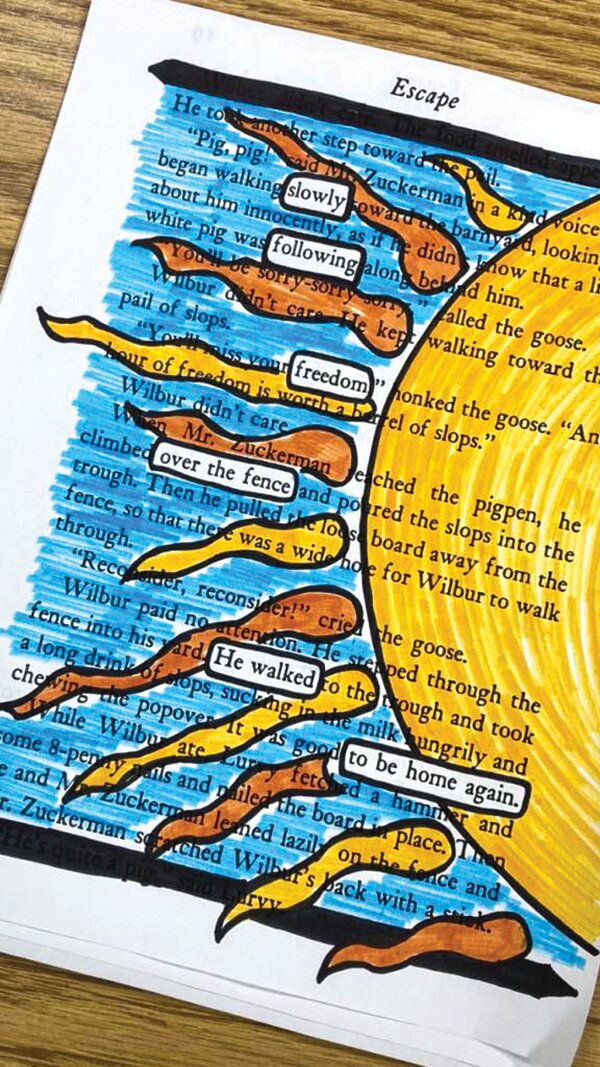 Escape
Wilbur didn't care. The food smelled appe
He took another step toward the pail.
"Pig, pig!" said Mr. Zuckerman in a kind voice
began walking slowly toward the barnyard, lookin
about him innocently, as if he didn know that a li
white pig was following along behind him.
"You'll be sorry-sorry-sorry," called the goose.
Wilbur didn't care. He kept walking toward th
pail of slops.
"You'll miss your freedom," honked the goose. "An
hour of freedom is worth a barrel of slops."
Wilbur didn't care.
When Mr. Zuckerman reached the pigpen, he
climbed over the fence and poured the slops into the
trough. Then he pulled the loose board away from the
fence, so that there was a wide hole for Wilbur to walk
through.
"Reconsider, reconsider!" cried the goose.
Wilbur paid no attention. He stepped through the
fence into his yard. He walked to the trough and took
a long drink of slops, sucking in the milk hungrily and
chewing the popover. It was good to be home again.
While Wilbur ate, Lurvy fetched a hammer and
some 8-penny nails and nailed the board in place. Then
e and Mr. Zuckerman leaned lazily on the fence and
r. Zuckerman scratched Wilbur's back with a stick.
"He's quite a pig," said Lurvy.